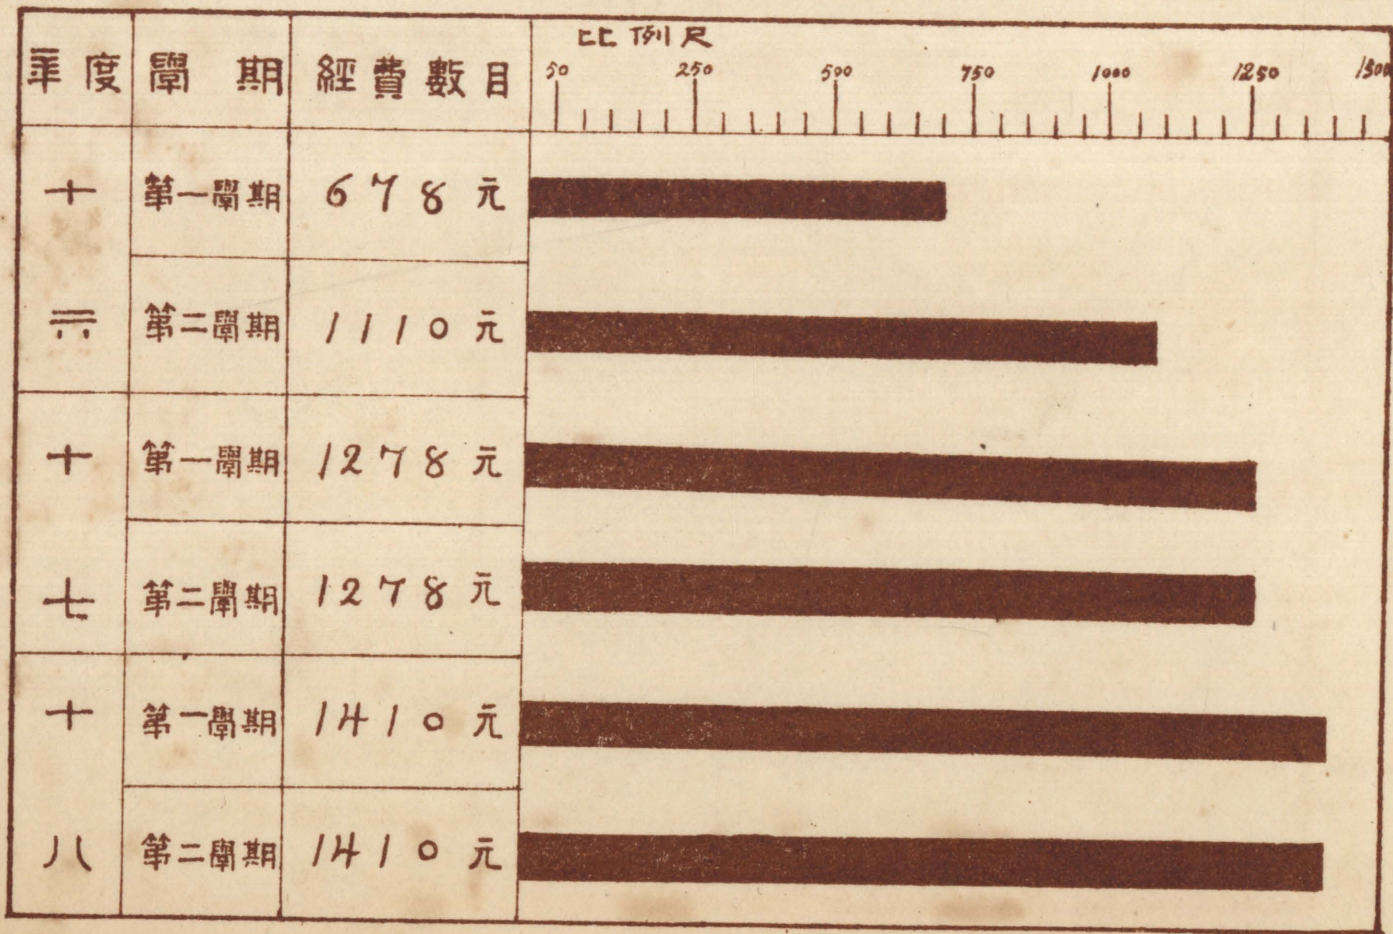 年度 學期 經費數目 比例尺
50 250 500 750 1000 1250 1500
十六 第一學期 678元
第二學期 1110元
十七 第一學期 1278元
第二學期 1278元
十八 第一學期 1410元
第二學期 1410元